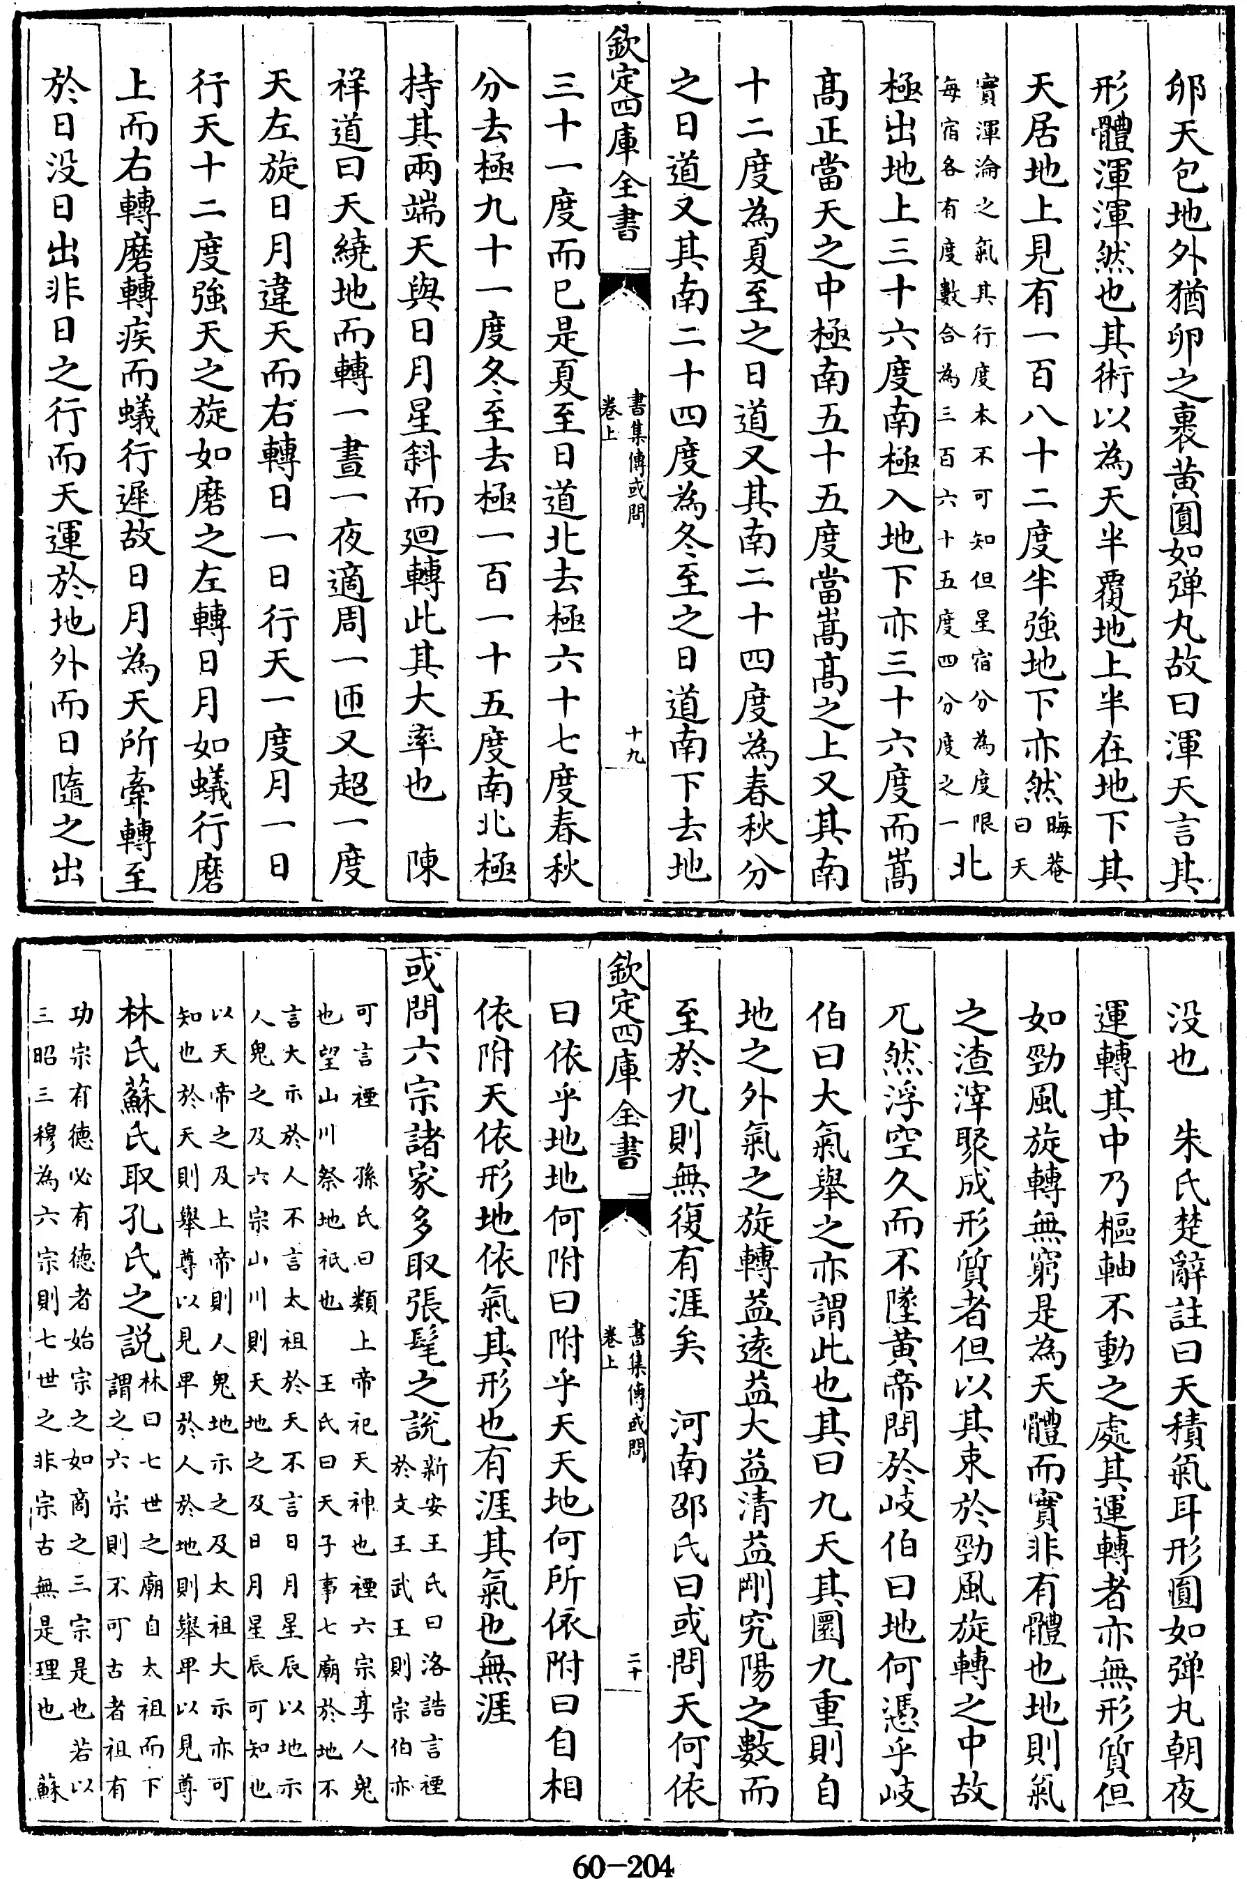 夘天包地外猶卵之裹黄圎如弹丸故曰渾天言其
形體渾渾然也其術以為天半覆地上半在地下其
天居地上見有一百八十二度半強地下亦然晦菴
曰天
實渾淪之氣其行度本不可知但星宿分為度限
每宿各有度數合為三百六十五度四分度之一
北
極出地上三十六度南極入地下亦三十六度而嵩
髙正當天之中極南五十五度當嵩髙之上又其南
十二度為夏至之日道又其南二十四度為春秋分
之日道又其南二十四度為冬至之日道南下去地
欽定四庫全書
書集傳或問
卷上
十九
三十一度而已是夏至日道北去極六十七度春秋
分去極九十一度冬至去極一百一十五度南北極
持其兩端天與日月星斜而廻轉此其大率也　陳
祥道曰天繞地而轉一晝一夜適周一匝又超一度
天左旋日月違天而右轉日一日行天一度月一日
行天十二度強天之旋如磨之左轉日月如蟻行磨
上而右轉磨轉疾而蟻行遲故日月為天所牽轉至
於日没日出非日之行而天運於地外而日隨之出
没也　朱氏楚辭註曰天積氣耳形圎如弹丸朝夜
運轉其中乃樞軸不動之處其運轉者亦無形質但
如勁風旋轉無窮是為天體而實非有體也地則氣
之渣滓聚成形質者但以其束於勁風旋轉之中故
兀然浮空久而不墜黄帝問於岐伯曰地何憑乎岐
伯曰大氣舉之亦謂此也其曰九天其圜九重則自
地之外氣之旋轉益逺益大益清益剛究陽之數而
至於九則無復有涯矣　河南邵氏曰或問天何依
欽定四庫全書
書集傳或問
卷上
二十
曰依乎地地何附曰附乎天天地何所依附曰自相
依附天依形地依氣其形也有涯其氣也無涯
或問六宗諸家多取張髦之説新安王氏曰洛誥言禋
於文王武王則宗伯亦
可言禋　孫氏曰類上帝祀天神也禋六宗享人鬼
也望山川祭地祇也　王氏曰天子事七廟於地不
言大示於人不言太祖於天不言日月星辰以地示
人鬼之及六宗山川則天地之及日月星辰可知也
以天帝之及上帝則人鬼地示之及太祖大示亦可
知也於天則舉尊以見卑於人於地則舉卑以見尊
林氏蘇氏取孔氏之説林曰七世之廟自太祖而下
謂之六宗則不可古者祖有
功宗有德必有德者始宗之如商之三宗是也若以
三昭三穆為六宗則七世之非宗古無是理也　蘇
60-204